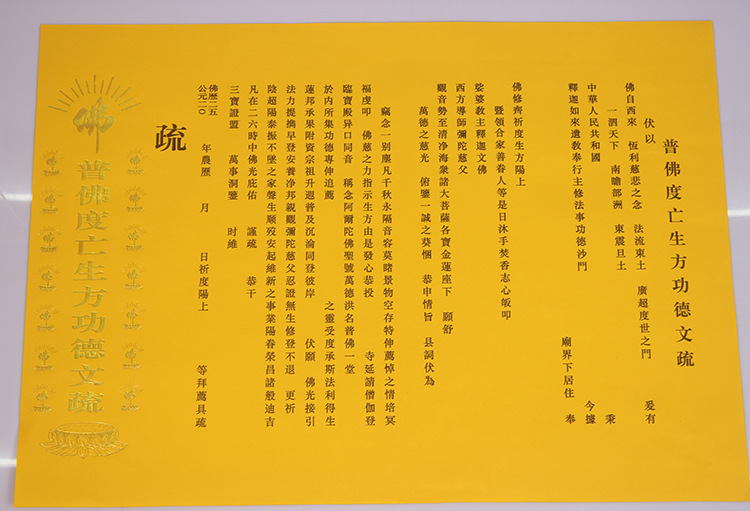 普佛度亡生方功德文疏
伏以
佛自西來 恆利慈悲之念 法流東土 廣超度世之門 爰有
一泗天下 南瞻部洲 東震旦土 秉
中華人民共和國 今據
釋迦如來遺教奉行主修法事功德沙門
廟界下居住 奉
佛修齊祈度生方陽上
暨領合家善眷人等是日沐手焚香志心皈叩
娑婆教主釋迦文佛
西方導師彌陀慈父
觀音勢至清净海衆諸大菩薩各寶金蓮座下 願舒
萬德之慈光 俯鑒一誠之葵悃 恭申情旨 具詞伏為
竊念一别塵凡千秋永隔音容莫睹景物空存特伸薦悼之情培冥
福虔叩 佛慈之力指示生方由是發心恭投 寺延請僧伽登
臨寶殿异口同音 稱念阿爾陀佛聖號萬德洪名普佛一堂
於内所集功德專伸追薦 之靈受度承斯法利得生
蓮邦承果附資宗祖升遐普及沉淪同登彼岸 伏願 佛光接引
法力提携早登安養净邦親觀彌陀慈父忍證無生修登不退 更祈
陰超陽泰振不墜之家聲生顺殁安起維新之事業陽眷榮昌諸般迪吉
凡在二六時中佛光庇佑 謹疏 恭干
三寶證盟 萬事洞鑒 时維
佛歷二五
公元二〇 年農歷 月 日祈度陽上 等拜薦具疏
疏
佛
普佛度亡生方功德文疏